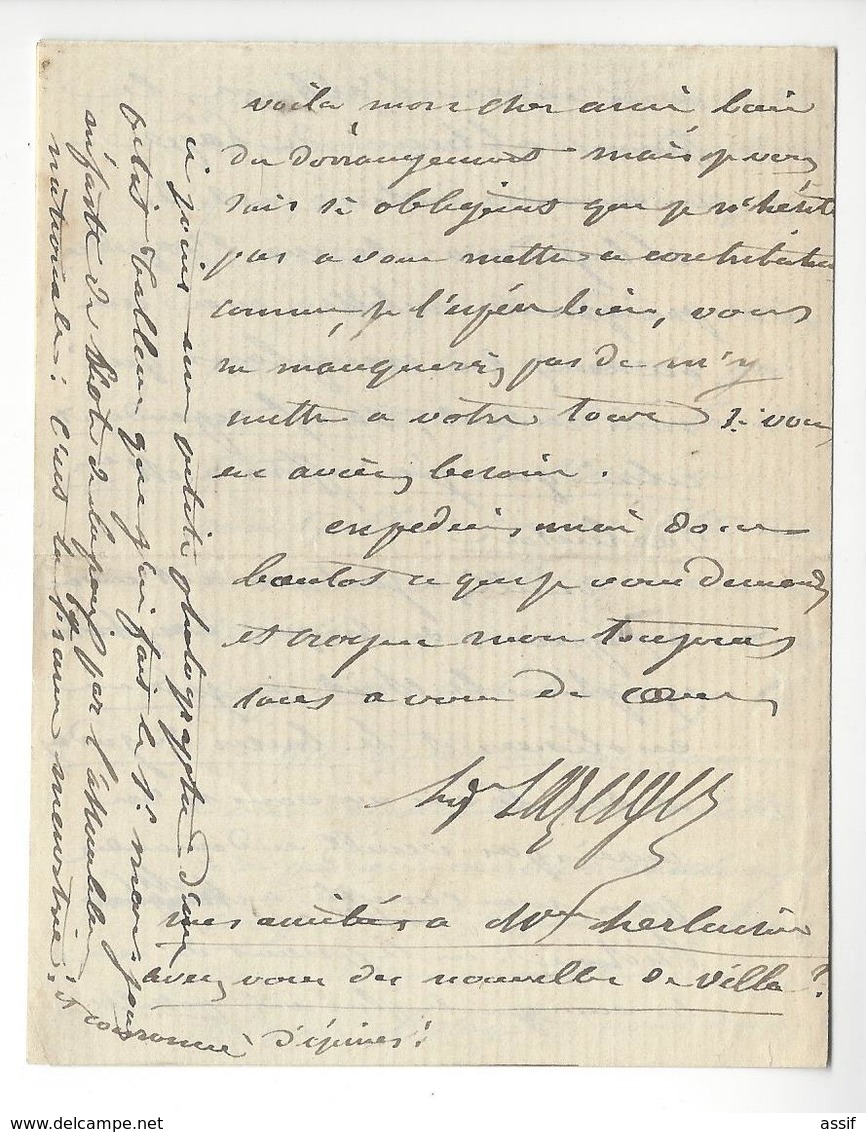 voila mon cher ami bien
du dérangement mais je vous
sais si obligeant que je n'hésite
pas a vous mettre a contribution
comme, je l'espère bien, vous
ne manquerez pas de m'y
mettre a votre tour si vous
en aviez besoin.
expediez moi donc
ce que je vous demande
et croyez moi toujours
tout a vous de coeur
Lazerges
mes amitiés a Mr
avez vous des nouvelles de Villa?
ci joins une petite photographie d'un
petit tableau que j'ai fait le 1er mars jour
néfaste du vote de la paix par l'assemblée
nationale: c'est la france meurtrie! et couronnée
d'épines!
delcampe.net
assif